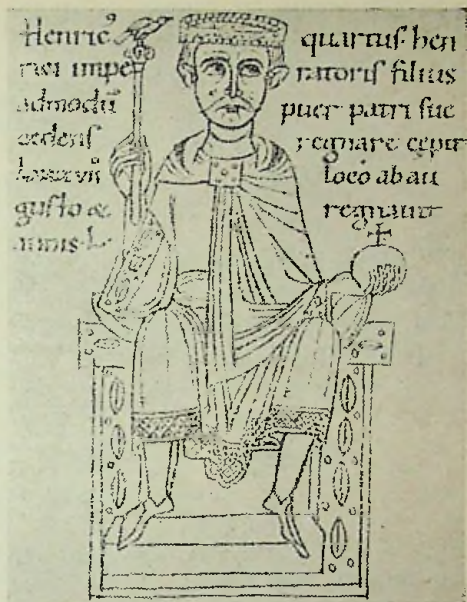 Henric⁹ quartus hen
rici impe ratoris filius
admodū puer patri suc
cedens regnare cepit
loco ab au
gusto regnavit
annis L